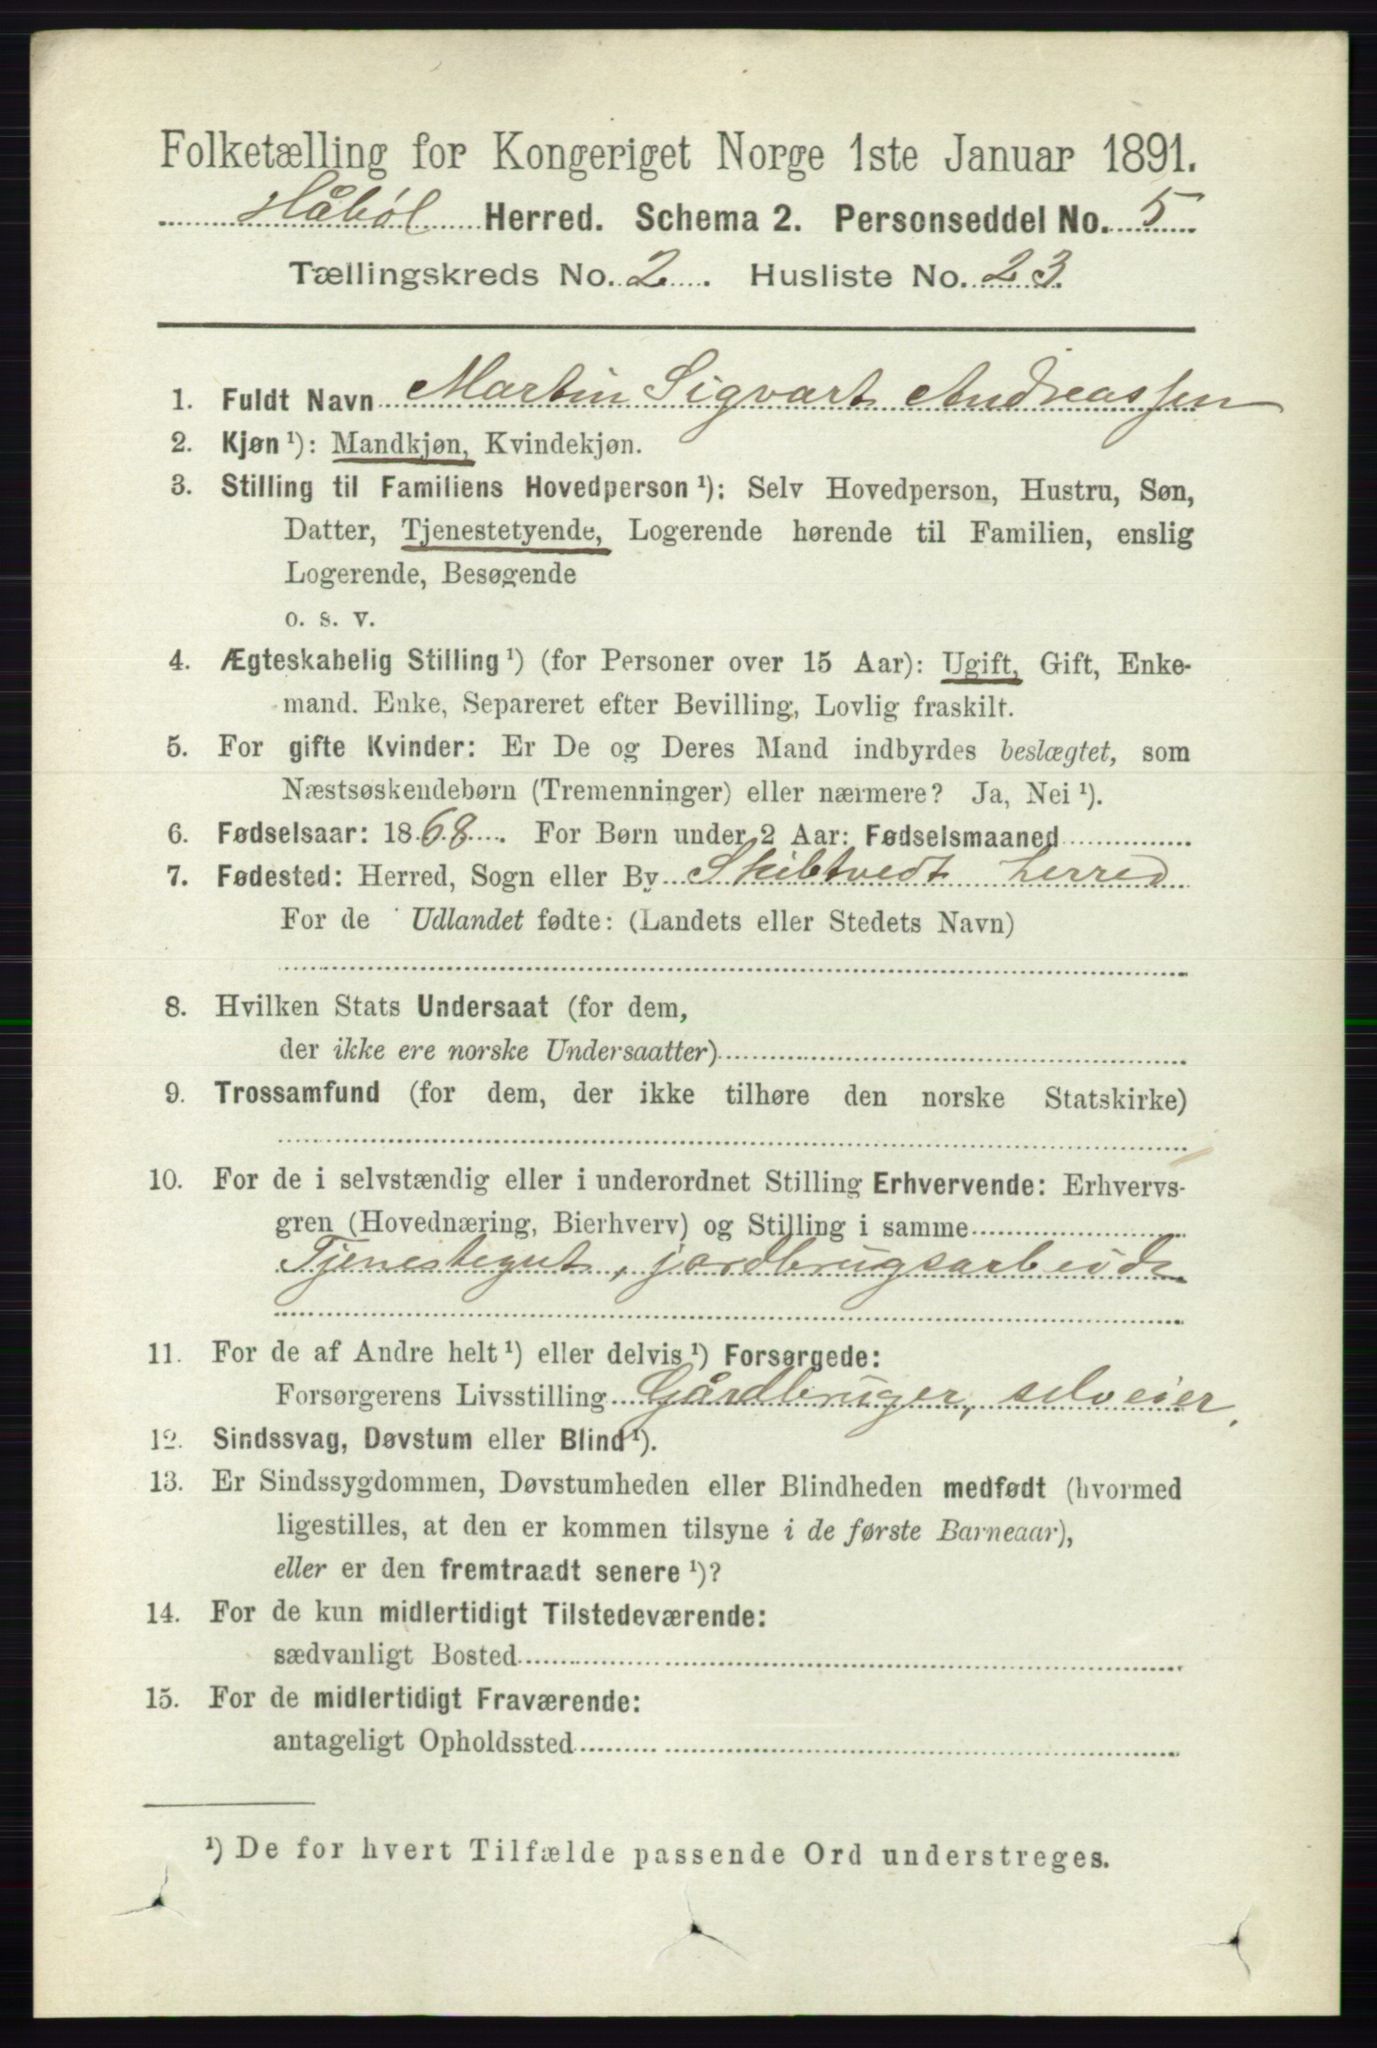 Folketælling for Kongeriget Norge 1ste Januar 1891.
Håbøl Herred. Schema 2. Personseddel No. 5
Tællingskreds No. 2. Husliste No. 23.
1. Fuldt Navn Martin Sigvart Andreassen
2. Kjøn ¹): Mandkjøn, Kvindekjøn.
3. Stilling til Familiens Hovedperson ¹): Selv Hovedperson, Hustru, Søn,
Datter, Tjenestetyende, Logerende hørende til Familien, enslig
Logerende, Besøgende
o. s. v.
4. Ægteskabelig Stilling ¹) (for Personer over 15 Aar): Ugift, Gift, Enke-
mand. Enke, Separeret efter Bevilling, Lovlig fraskilt.
5. For gifte Kvinder: Er De og Deres Mand indbyrdes beslægtet, som
Næstsøskendebørn (Tremenninger) eller nærmere? Ja, Nei ¹).
6. Fødselsaar: 1868. For Børn under 2 Aar: Fødselsmaaned
7. Fødested: Herred, Sogn eller By Skibtvedt herred
For de Udlandet fødte: (Landets eller Stedets Navn)
8. Hvilken Stats Undersaat (for dem,
der ikke ere norske Undersaatter)
9. Trossamfund (for dem, der ikke tilhøre den norske Statskirke)
10. For de i selvstændig eller i underordnet Stilling Erhvervende: Erhvervs-
gren (Hovednæring, Bierhverv) og Stilling i samme
Tjenestegut, jordbrugsarbeide
11. For de af Andre helt ¹) eller delvis ¹) Forsørgede:
Forsørgerens Livsstilling Gårdbruger, selveier.
12. Sindssvag, Døvstum eller Blind ¹).
13. Er Sindssygdommen, Døvstumheden eller Blindheden medfødt (hvormed
ligestilles, at den er kommen tilsyne i de første Barneaar),
eller er den fremtraadt senere ¹)?
14. For de kun midlertidigt Tilstedeværende:
sædvanligt Bosted
15. For de midlertidigt Fraværende:
antageligt Opholdssted
¹) De for hvert Tilfælde passende Ord understreges.